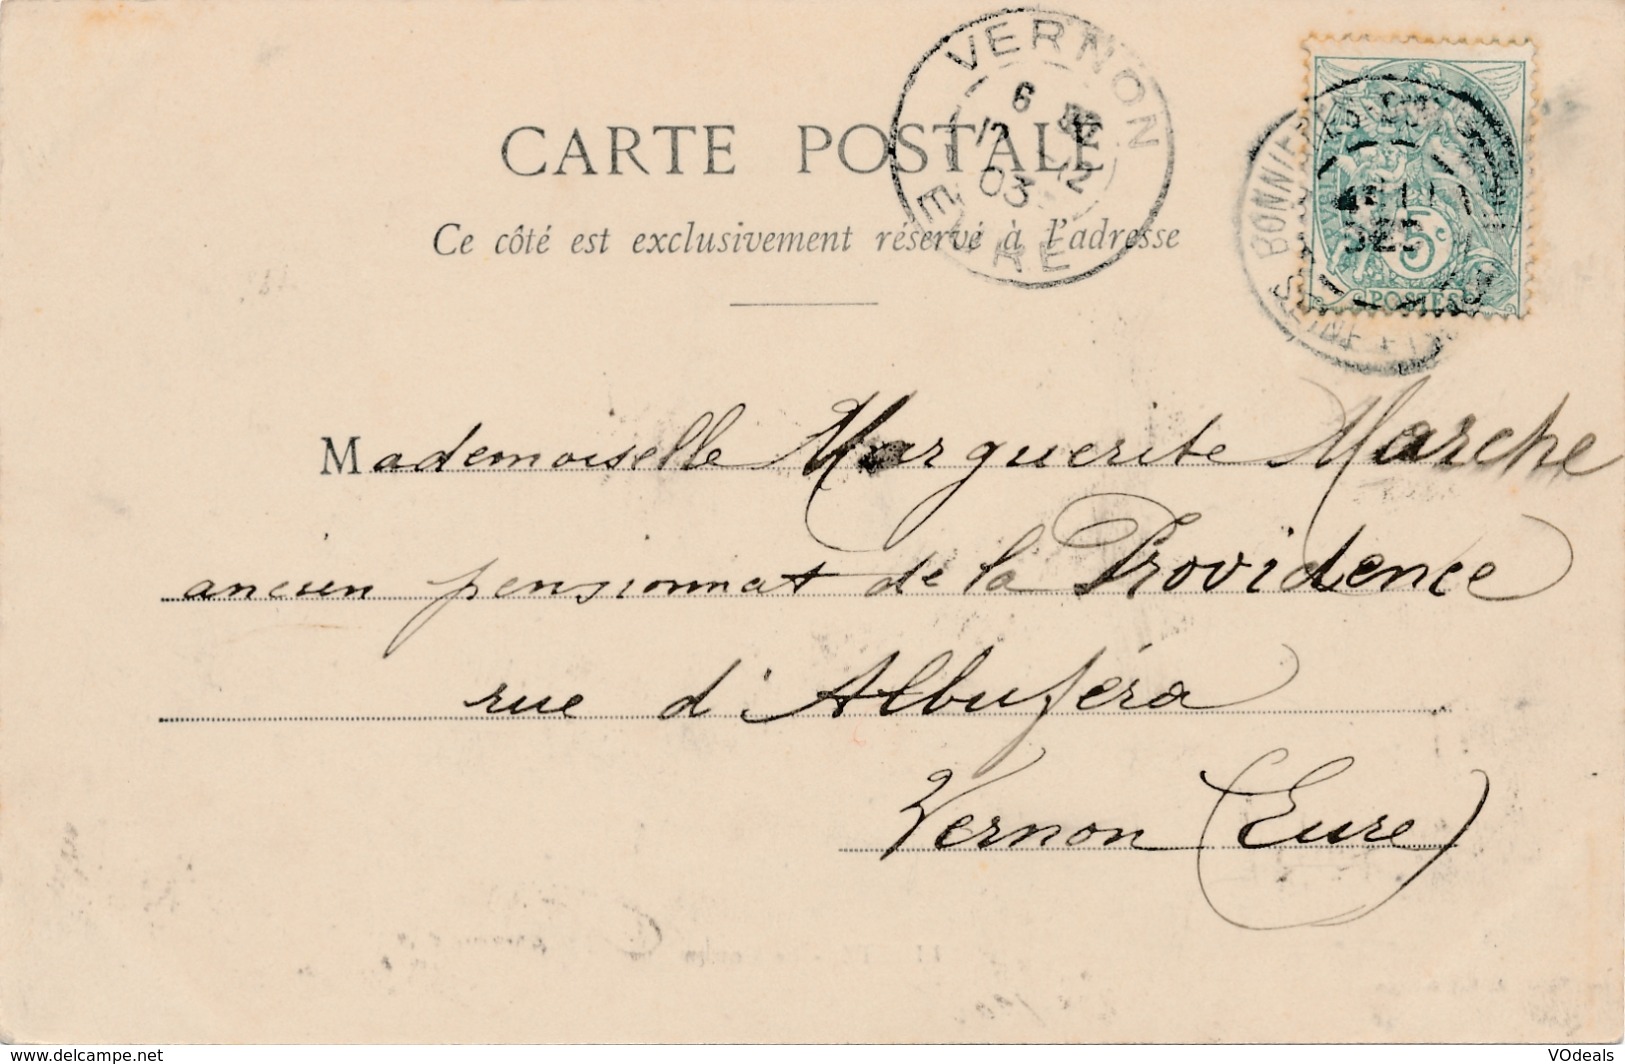 VERNON
6
12
03
EURE
CARTE POSTALE
Ce côté est exclusivement réservé à l'adresse
BONNIÈRES
SEINE
5c
POSTES
Mademoiselle Marguerite Marche
ancien pensionnat de la Providence
rue d'Albuféra
Vernon (Eure)
https://www.delcampe.net
VOdeals